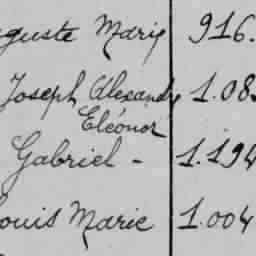 guste Marie 916.
Joseph Alexandre 1.08
Eléonor
Gabriel - 1.194
ouis Marie 1.004